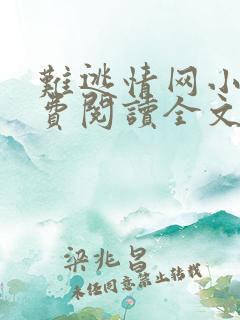 難逃情网小
費閱讀全文
梁兆昌
未任同意禁止转载